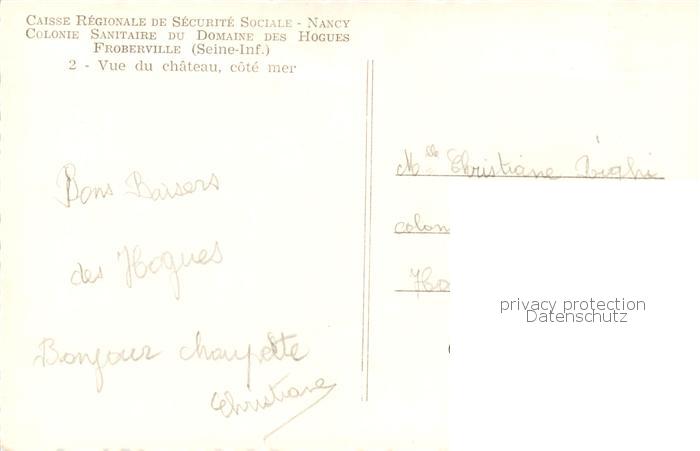 Caisse Régionale de Sécurité Sociale - Nancy
Colonie Sanitaire du Domaine des Hogues
Froberville (Seine-Inf.)
2 - Vue du château, côté mer
Bons Baisers
des Hogues
Bonjour
Christiane
Mlle Christiane
colon
Ho
privacy protection
Datenschutz